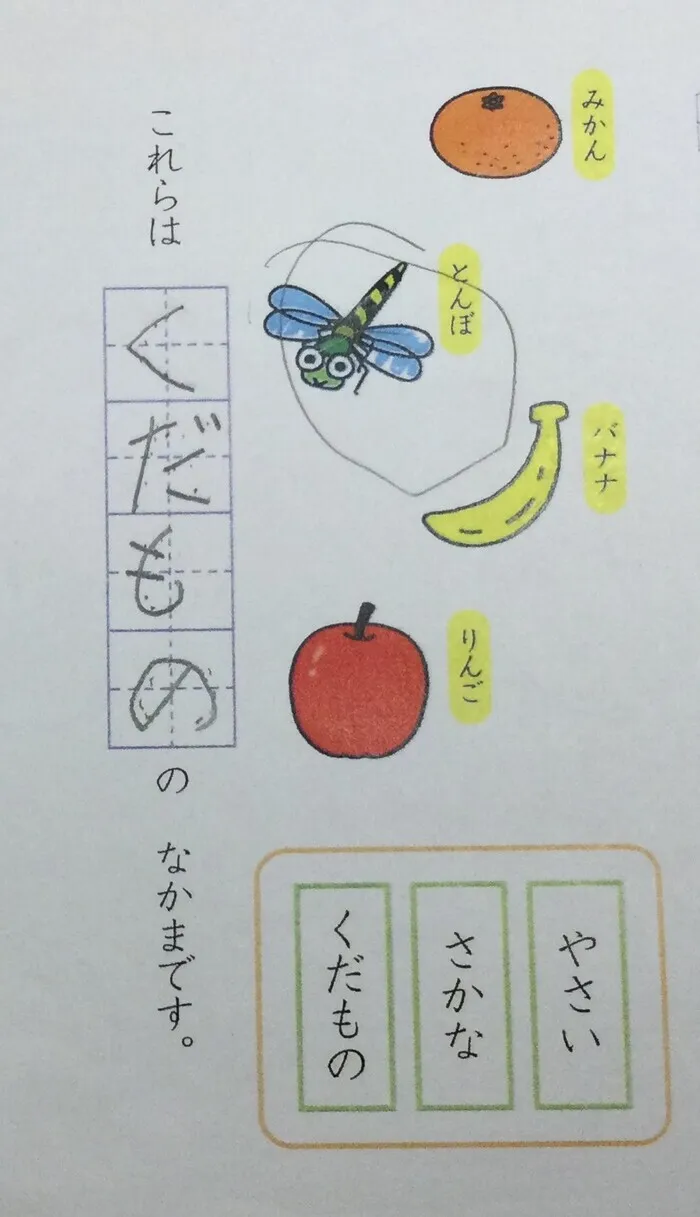 みかん
とんぼ
バナナ
りんご
やさい
さかな
くだもの
これらは くだもの の なかまです。